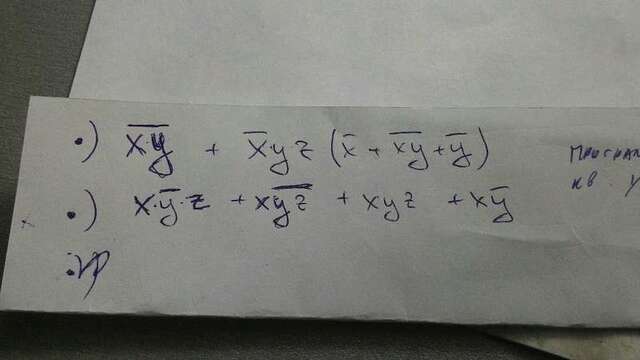 •) \overline{x·y} + \overline{x}yz (\overline{x} + \overline{xy} + \overline{y})
•) x·\overline{y}·z + x\overline{yz} + xyz + x\overline{y}
кв.